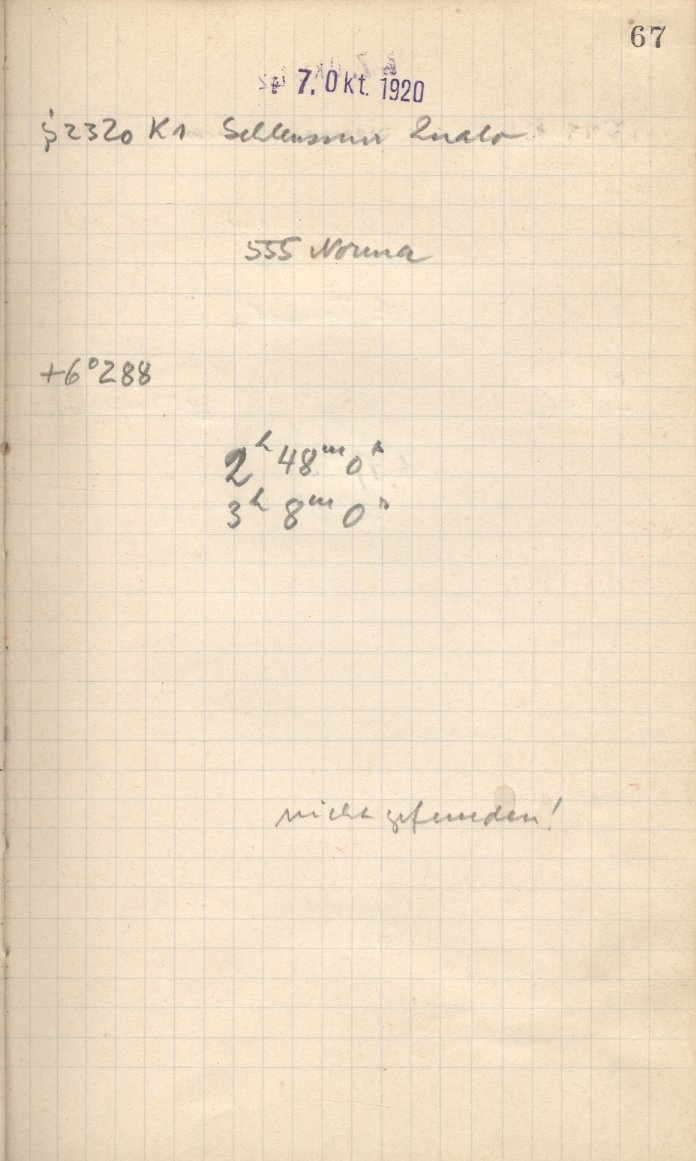 67
7. Okt. 1920
2320 K1 Schleussner
555 Norma
+6°288
2h 48m 0s
3h 8m 0s
nicht gefunden!